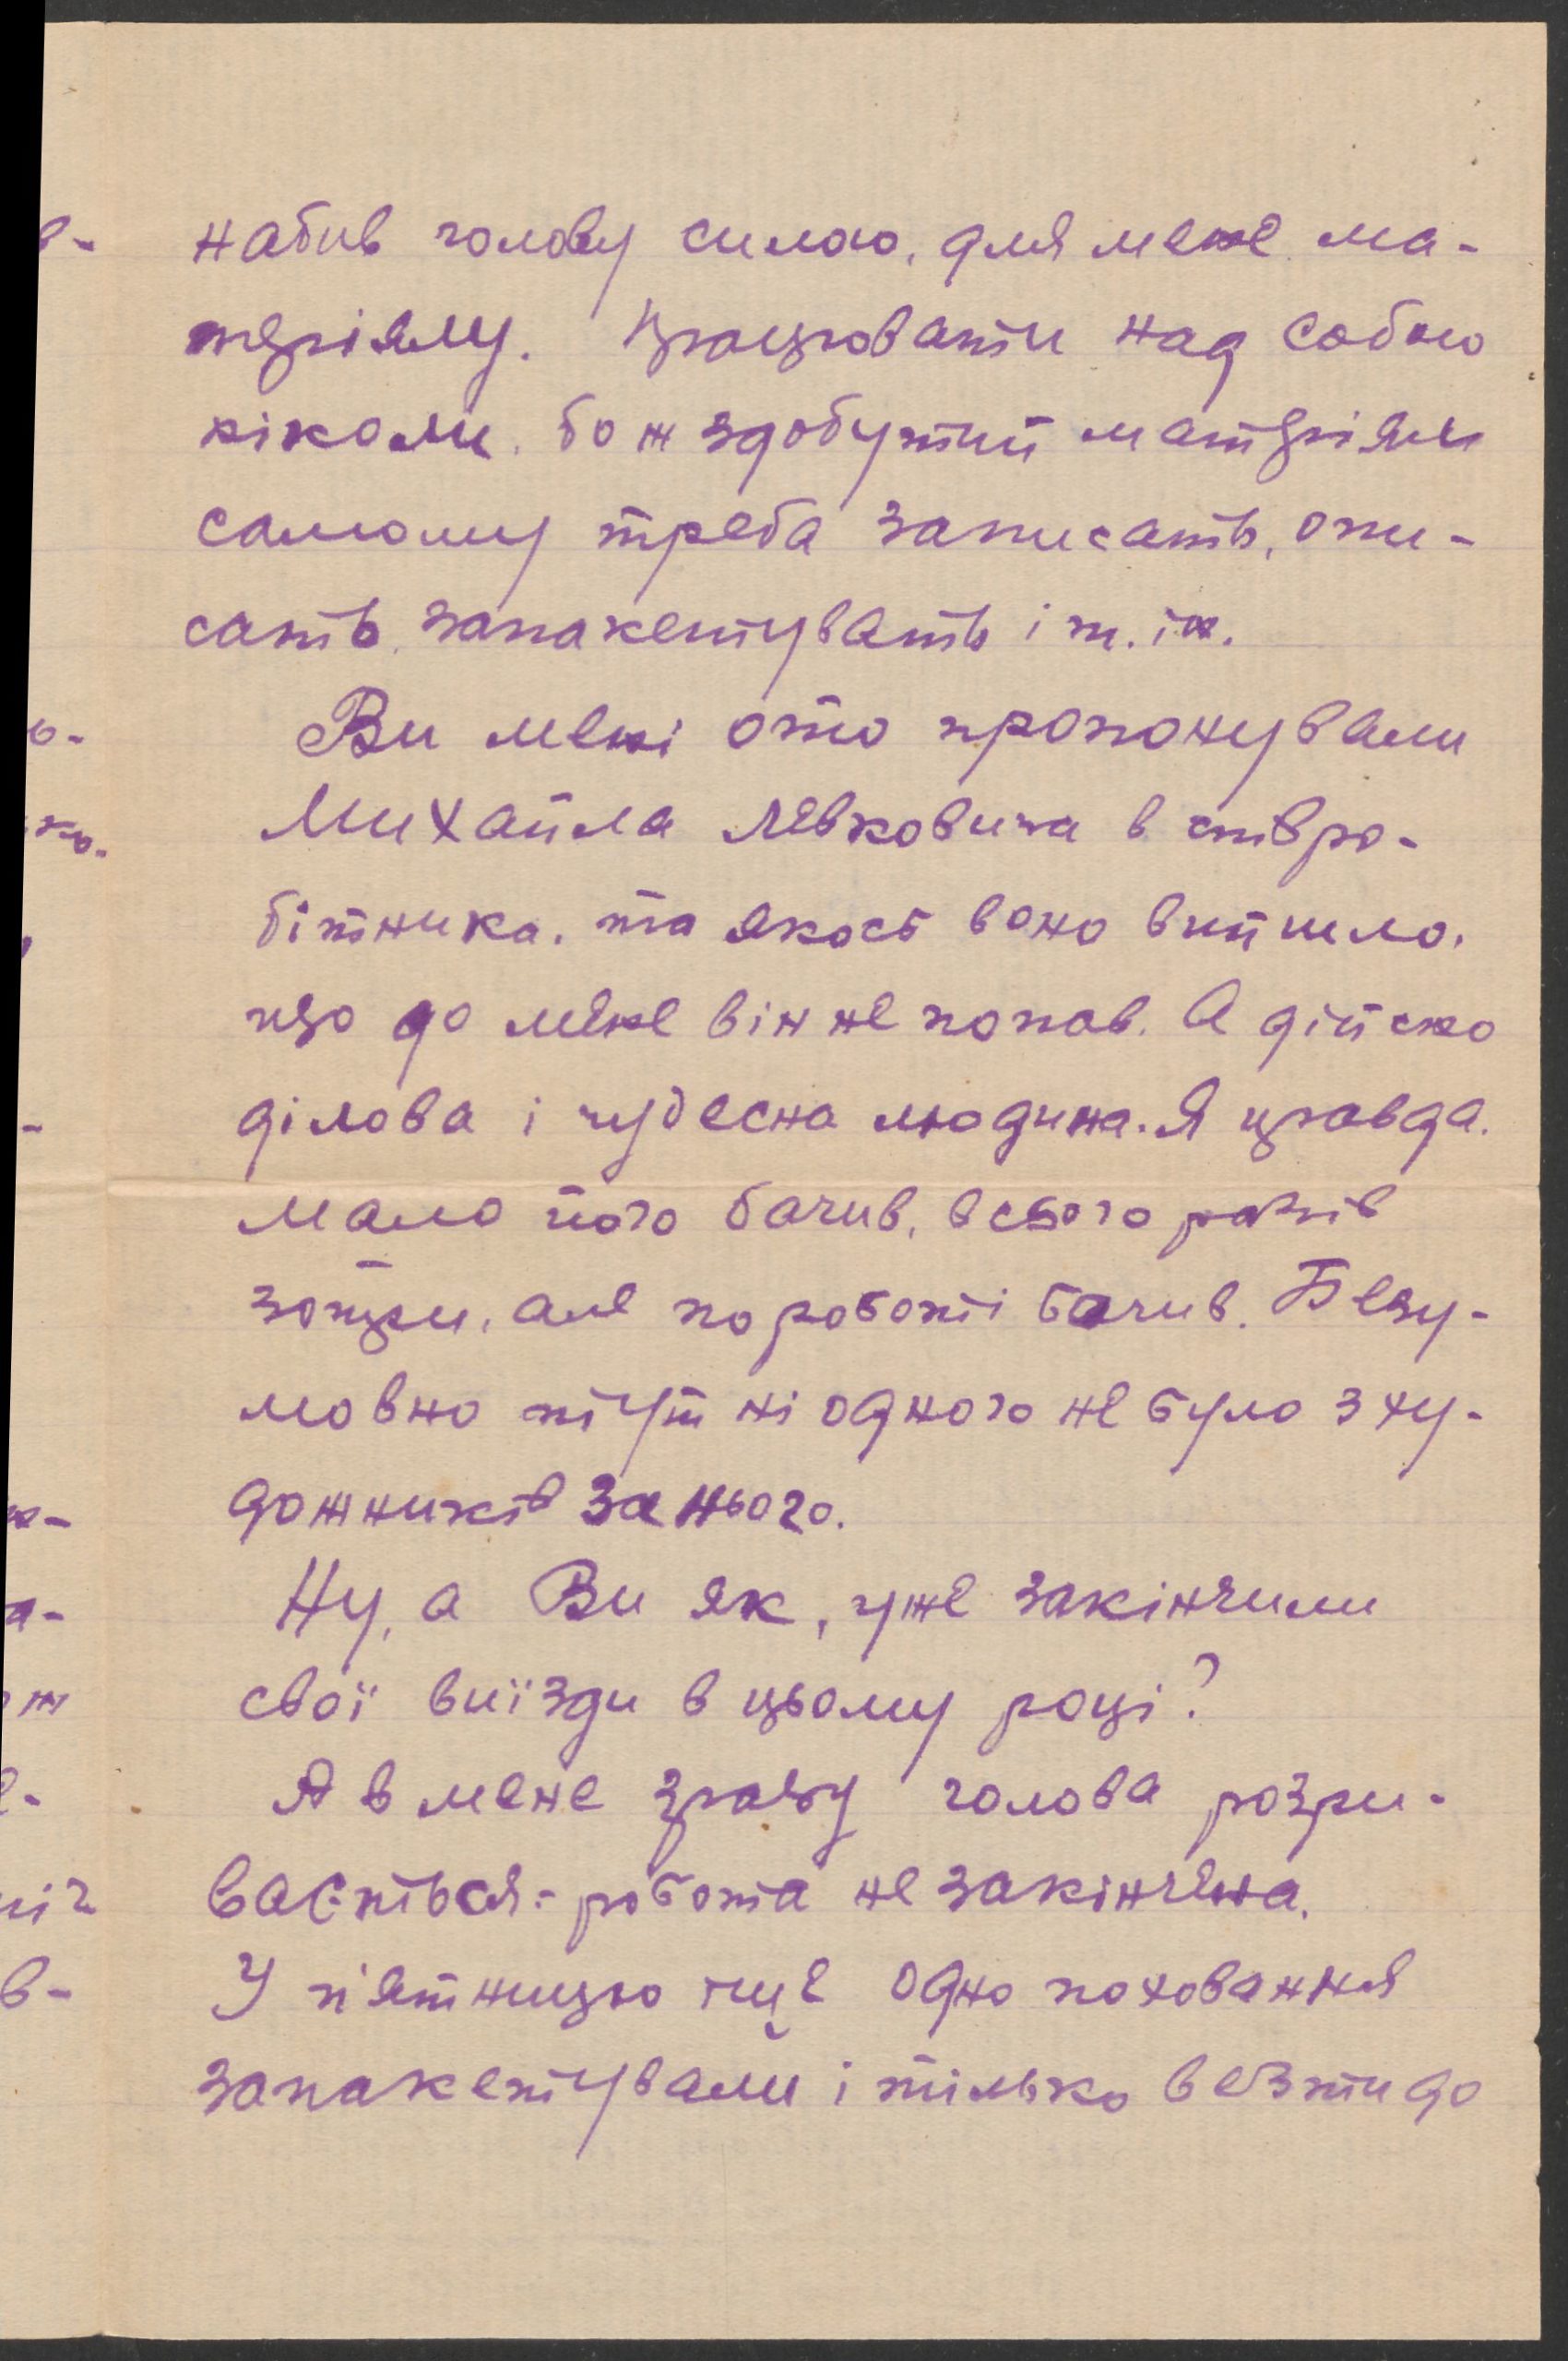 набив голову силою, для мене ма-
теріялу. Працювати над собою
ніколи, бо ж здобутий матеріял
самому треба записать, опи-
сать, запакетувать і т. ін.
Ви мені ото пропонували
Михайла Левковича в співро-
бітника, та якось воно вийшло,
що до мене він не попав. А дійсно
ділова і чудесна людина. Я правда,
мало його бачив, всього разів
зотри, але по роботі бачив. Безу-
мовно тут ні одного не було з ху-
дожників за нього.
Ну, а Ви як, уже закінчили
свої виїзди в цьому році?
А в мене зразу голова розри-
вається:- робота не закінчена.
У п'ятницю ще одно поховання
запакетували і тільки везти до